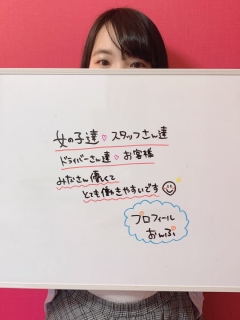 女の子達♡スタッフさん達
ドライバーさん達♡お客様
みなさん優しくて
とても働きやすいです
プロフィール
おんぷ